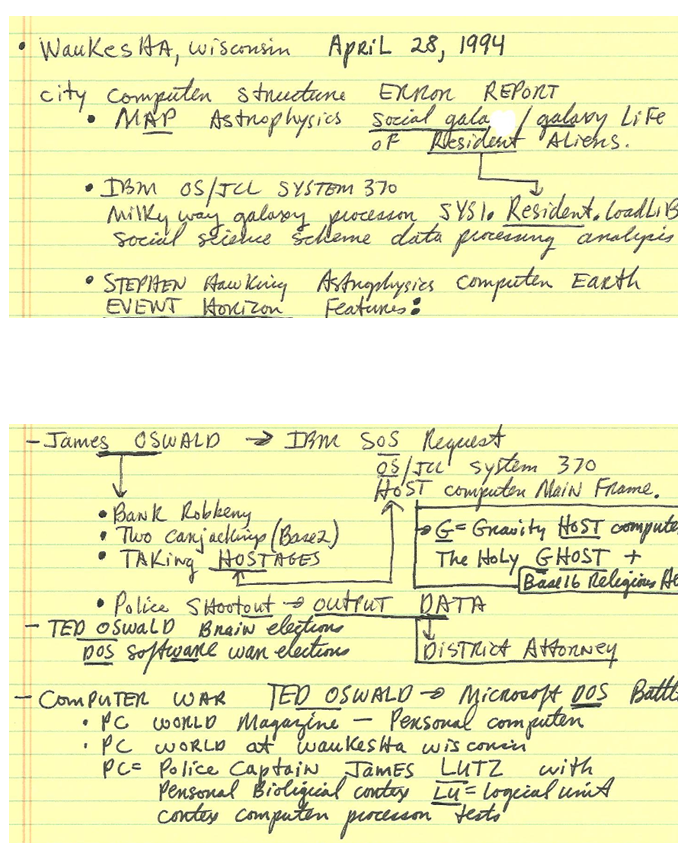 • Waukesha, Wisconsin April 28, 1994
city computer structure ERROR REPORT
• MAP Astrophysics social gala / galaxy LiFe
OF Resident ALiens.
• IBM OS/JCL SYSTEM 370
Milky way galaxy processor SYS1. Resident. LoadLiB
social science scheme data processing analysis
• STEPHEN Hawking Astrophysics computer Earth
EVENT Horizon Features:
- James OSWALD → IBM SOS Request
OS/JCL System 370
HOST computer Main Frame.
• Bank Robbery
• Two carjackings (Base2)
• TAKing HOSTAGES
→ G = Gravity HOST compute
The Holy GHOST +
Base16 Religious
• Police SHootout → OUTPUT DATA
- TED OSWALD Brain elections
DOS software war elections
DISTRICT ATTORNEY
- COMPUTER WAR TED OSWALD → Microsoft DOS Battl
• PC WORLD Magazine - Personal computer
• PC WORLD at WaukesHa wisconsin
PC = Police Captain JAMES LUTZ with
Personal Biological cortex LU = Logical unit
cortex computer processor tests